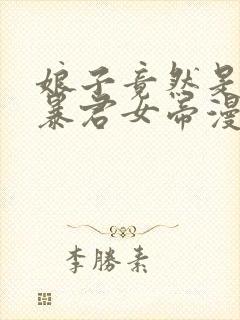 娘子竟然是
暴君女帝漫
李勝素